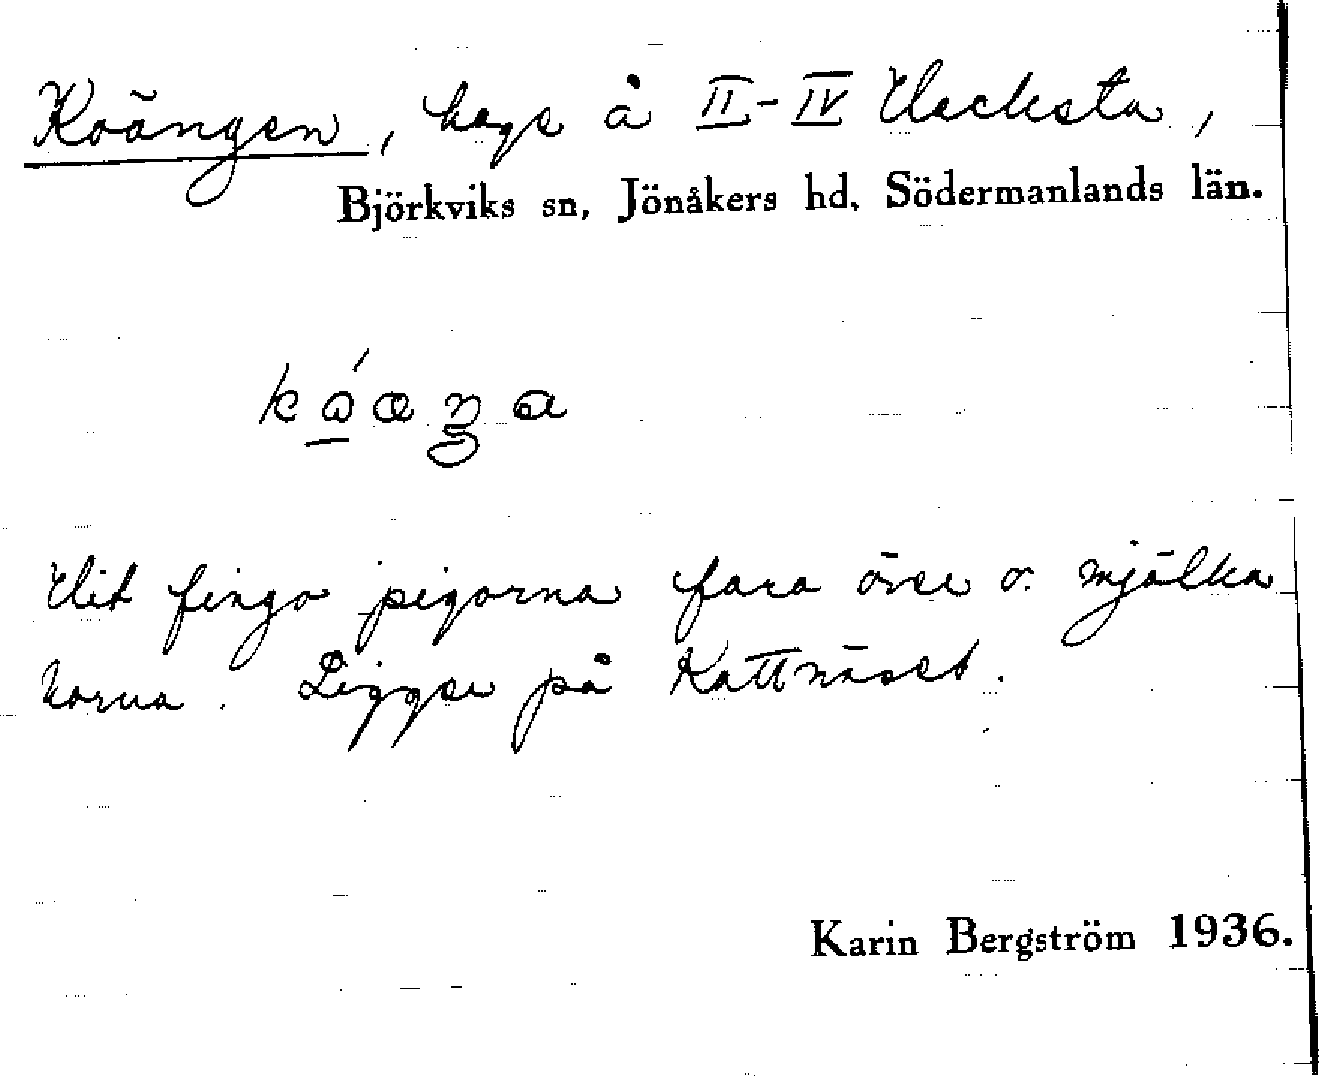 Koängen, hage å II-IV Hacksta,
Björkviks sn, Jönåkers hd, Södermanlands län.
Hit fingo pigorna fara över o. mjölka
korna. Ligger på Kattnäset.
Karin Bergström 1936.